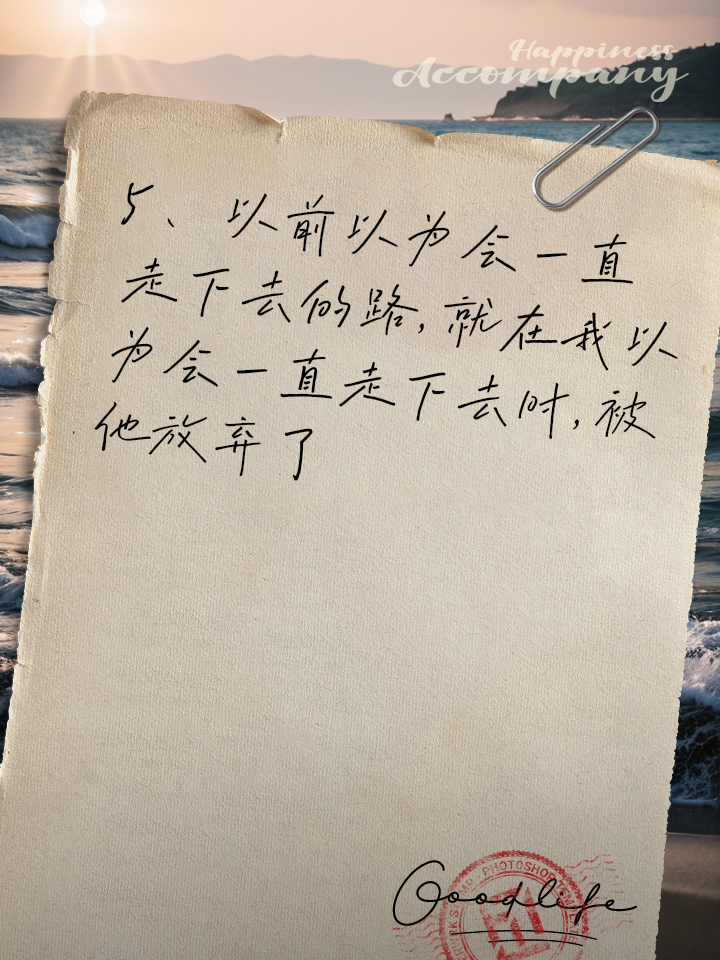 Happiness
Accompany
5、以前以为会一直
走下去的路,就在我以
为会一直走下去时,被
他放弃了
PHOTOSHOP
Goodlife